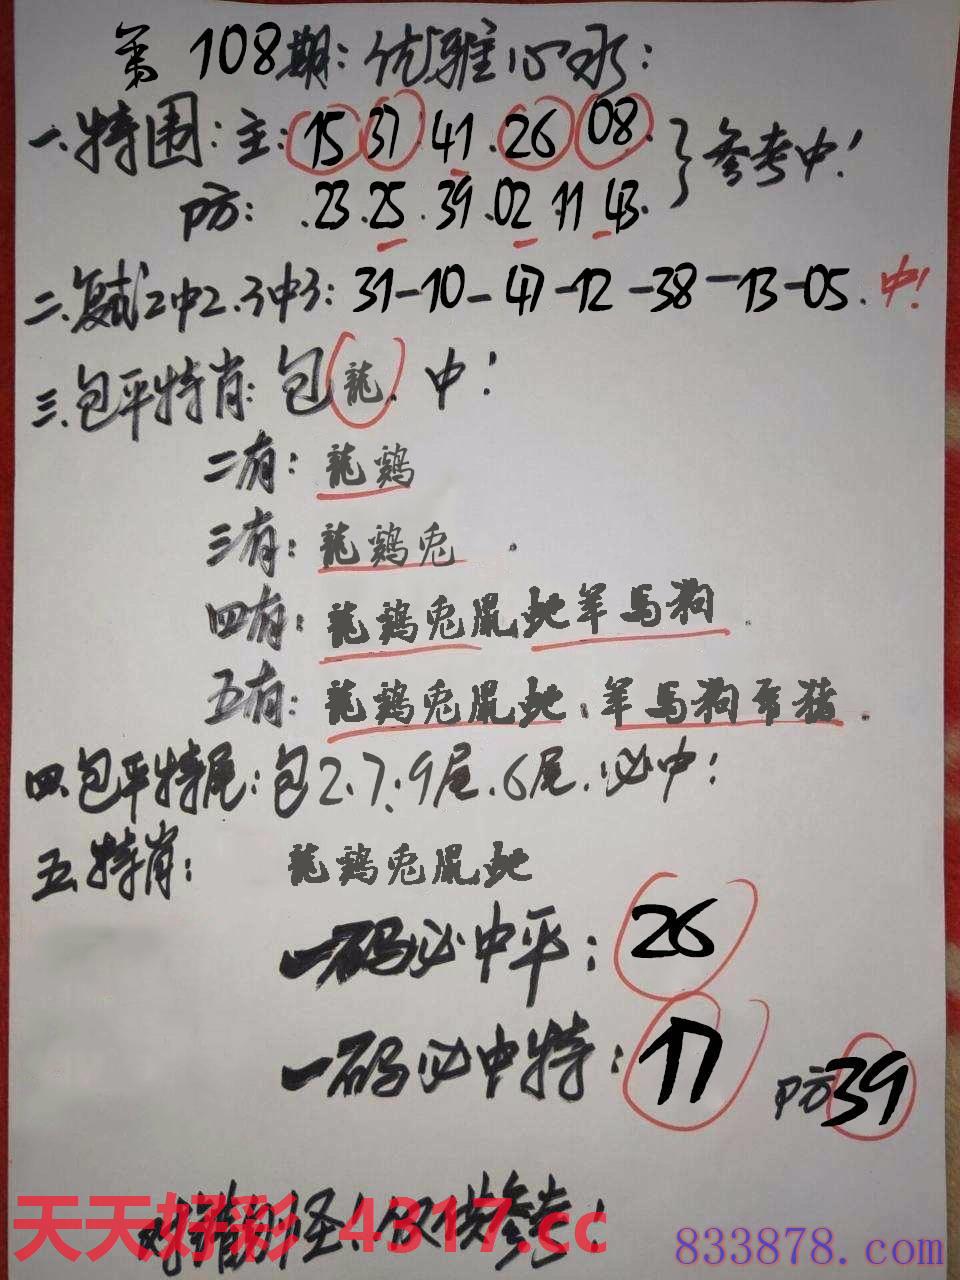 第108期:优雅心水:
一.特围:主:15 37 41.26 08.
防:.23.25.39.02 11 43.
参考中!
二.复试2中2.3中3:31-10-47-12-38-13-05.中!
三.包平特肖:包龍.中!
二有:龍鷄
三有:龍鷄兎.
四有:龍鷄兎鼠蛇羊马狗.
五有:龍鷄兎鼠蛇.羊马狗 猪.
四.包平特尾:包2.7.9尾.6尾.必中!
五.特肖:龍鷄兎鼠蛇
一码必中平:26
一码必中特:17 防39
错 怪!仅供参考!
天天好彩 4317.cc
833878.com